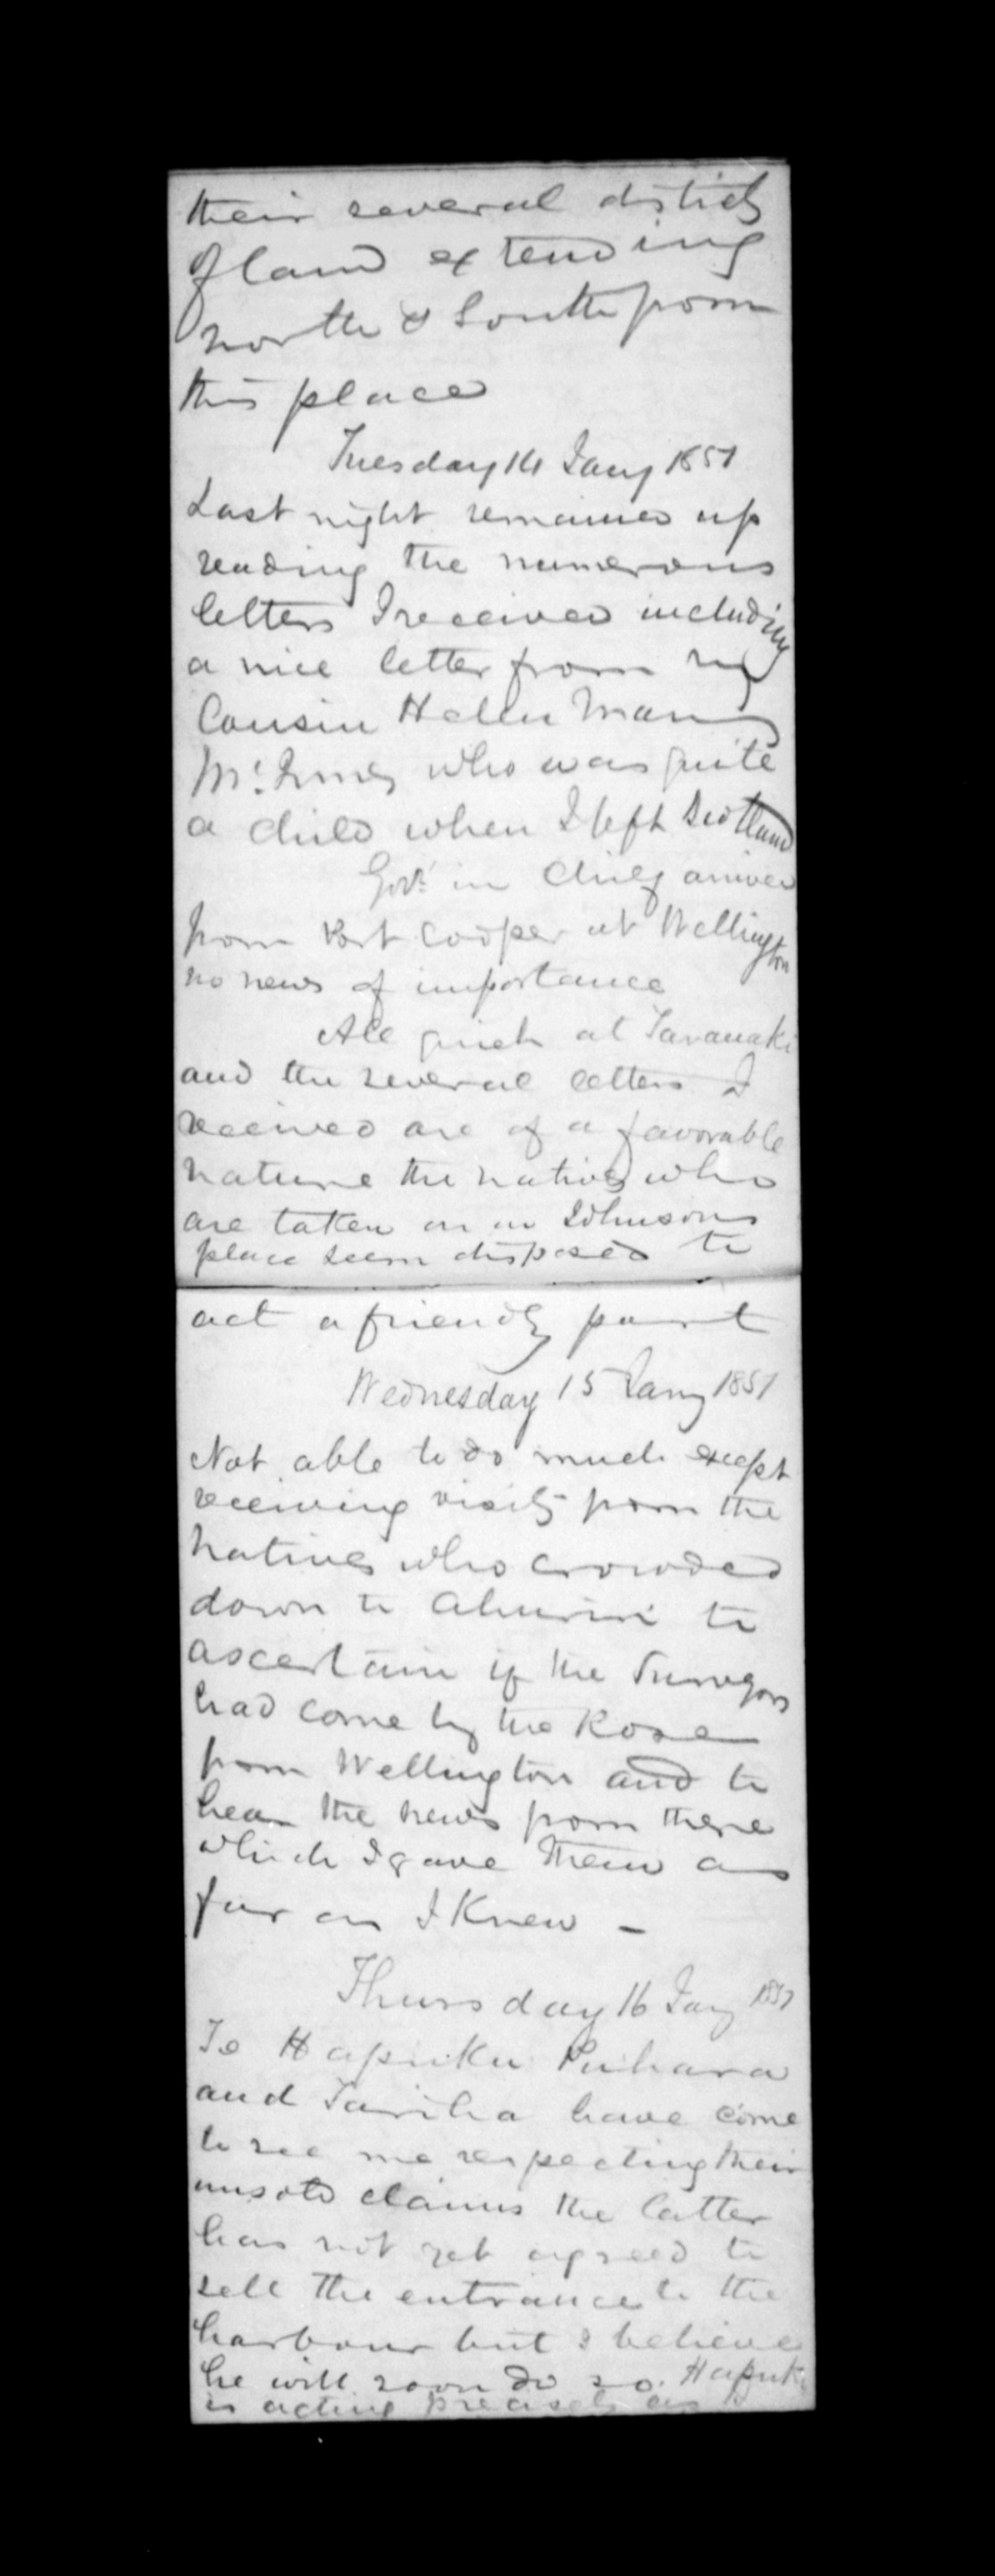 their several districts
of land extending
north & South from
this place
Tuesday 14 Jany 1851
Last night remained up
reading the numerous
letters I received including
a nice letter from my
Cousin Hellen Mary
McInnes who was quite
a child when I left Scotland
Govr. in Chief arrived
from Port Cooper at Wellington
no news of importance
All quiet at Taranaki
and the several letters I
received are of a favorable
nature the natives who
are taken on in Johnsons
place seem disposed to
act a friendly part
Wednesday 15 Jany 1851
Not able to do much except
receiving visits from the
Natives who crowded
down to Ahuriri to
ascertain if the Surveyors
had come by the Rose
from Wellington and to
hear the news from there
which I gave them as
far as I Knew -
Thursday 16 Jany 1851
Te Hapuku Puhara
and Tariha have come
to see me respecting their
unsold claims the latter
has not yet agreed to
sell the entrance to the
harbour but I believe
he will soon do so. Hapuku
is acting precisely as